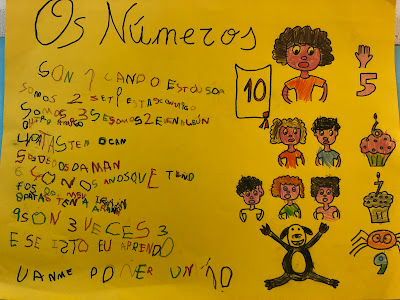 Os Números
SON 1 CANDO ESTOU SOA
SOMOS 2 SE TI ESTAS COMIGO
SOMOS 3 SE SOMOS 2 E VEN
4 PATAS TEN O CAN
5 OS DEDOS DA MAN
6 SON OS ANOS QUE TEÑO
8 PATAS TEN A
9 SON 3 VECES 3
E SE ISTO EU APRENDO
VANME POÑER UN 10
10
5
6
7
9